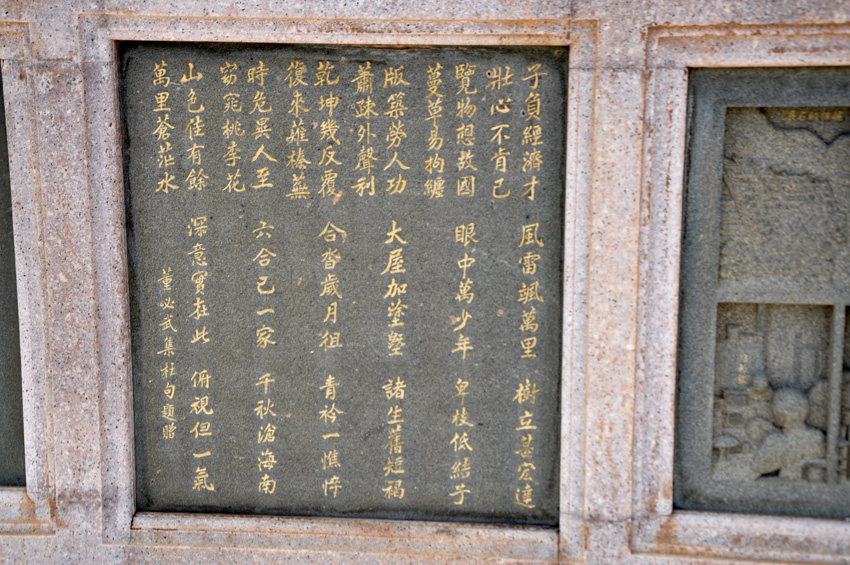 子負經濟才　風雷颯萬里　樹立甚宏達
壯心不肯已
覽物想故國　眼中萬少年　卑枝低結子
蔓草易拘纏
版築勞人功　大屋加塗墍　諸生舊短褐
蕭疎外聲利
乾坤幾反覆　合沓歲月徂　青衿一憔悴
復來薙榛蕪
時危異人至　六合已一家　千秋滄海南
窈窕桃李花
山色佳有餘　深意實在此　俯視但一氣
萬里蒼茫水　董必武集杜句題贈